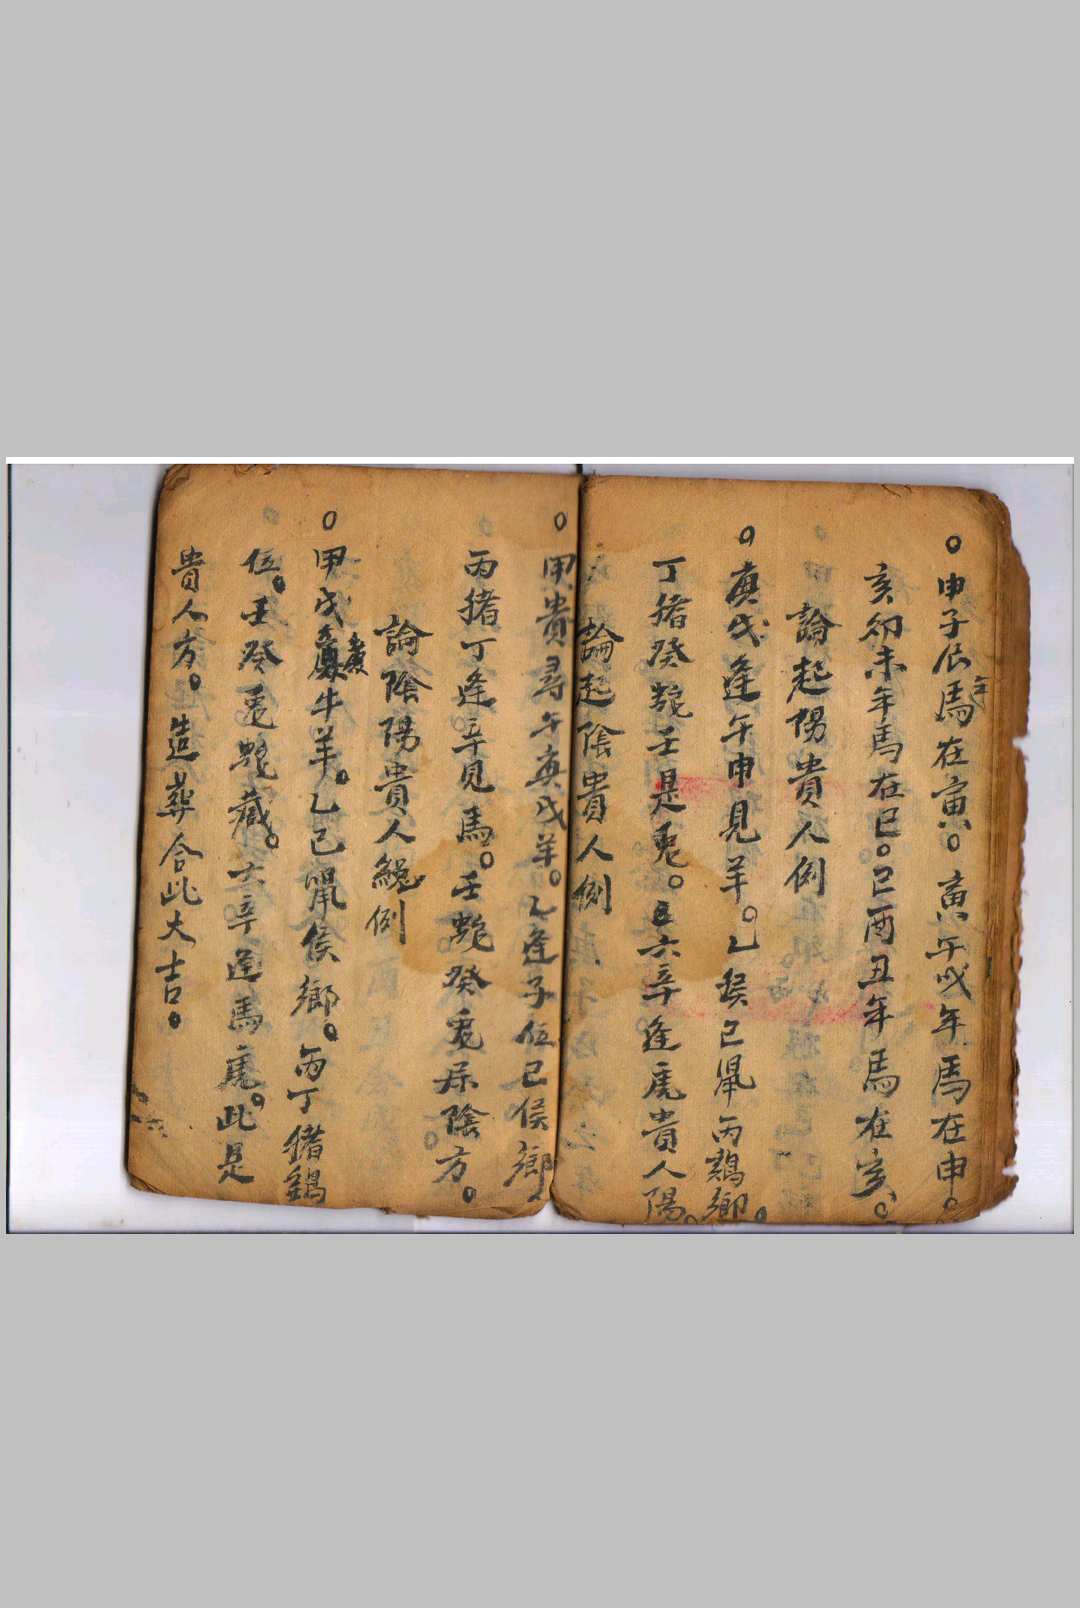 ○申子辰年馬在寅○寅午戌年馬在申○
亥卯未年馬在巳○巳酉丑年馬在亥○
論起陽貴人例
○庚戊逢牛甲見羊○乙猴己鼠丙鷄鄉○
丁猪癸蛇壬是兔○六辛逢虎貴人陽○
論起陰貴人例
○甲貴尋牛庚戊羊○乙逢子位己侯鄉○
丙猪丁逢辛見馬○壬蛇癸兔屬陰方○
論陰陽貴人總例
○甲戊庚牛羊○乙己鼠侯鄉○丙丁猪鷄
位○壬癸兔蛇藏○六辛逢馬虎○此是
貴人方○造葬合此大吉○